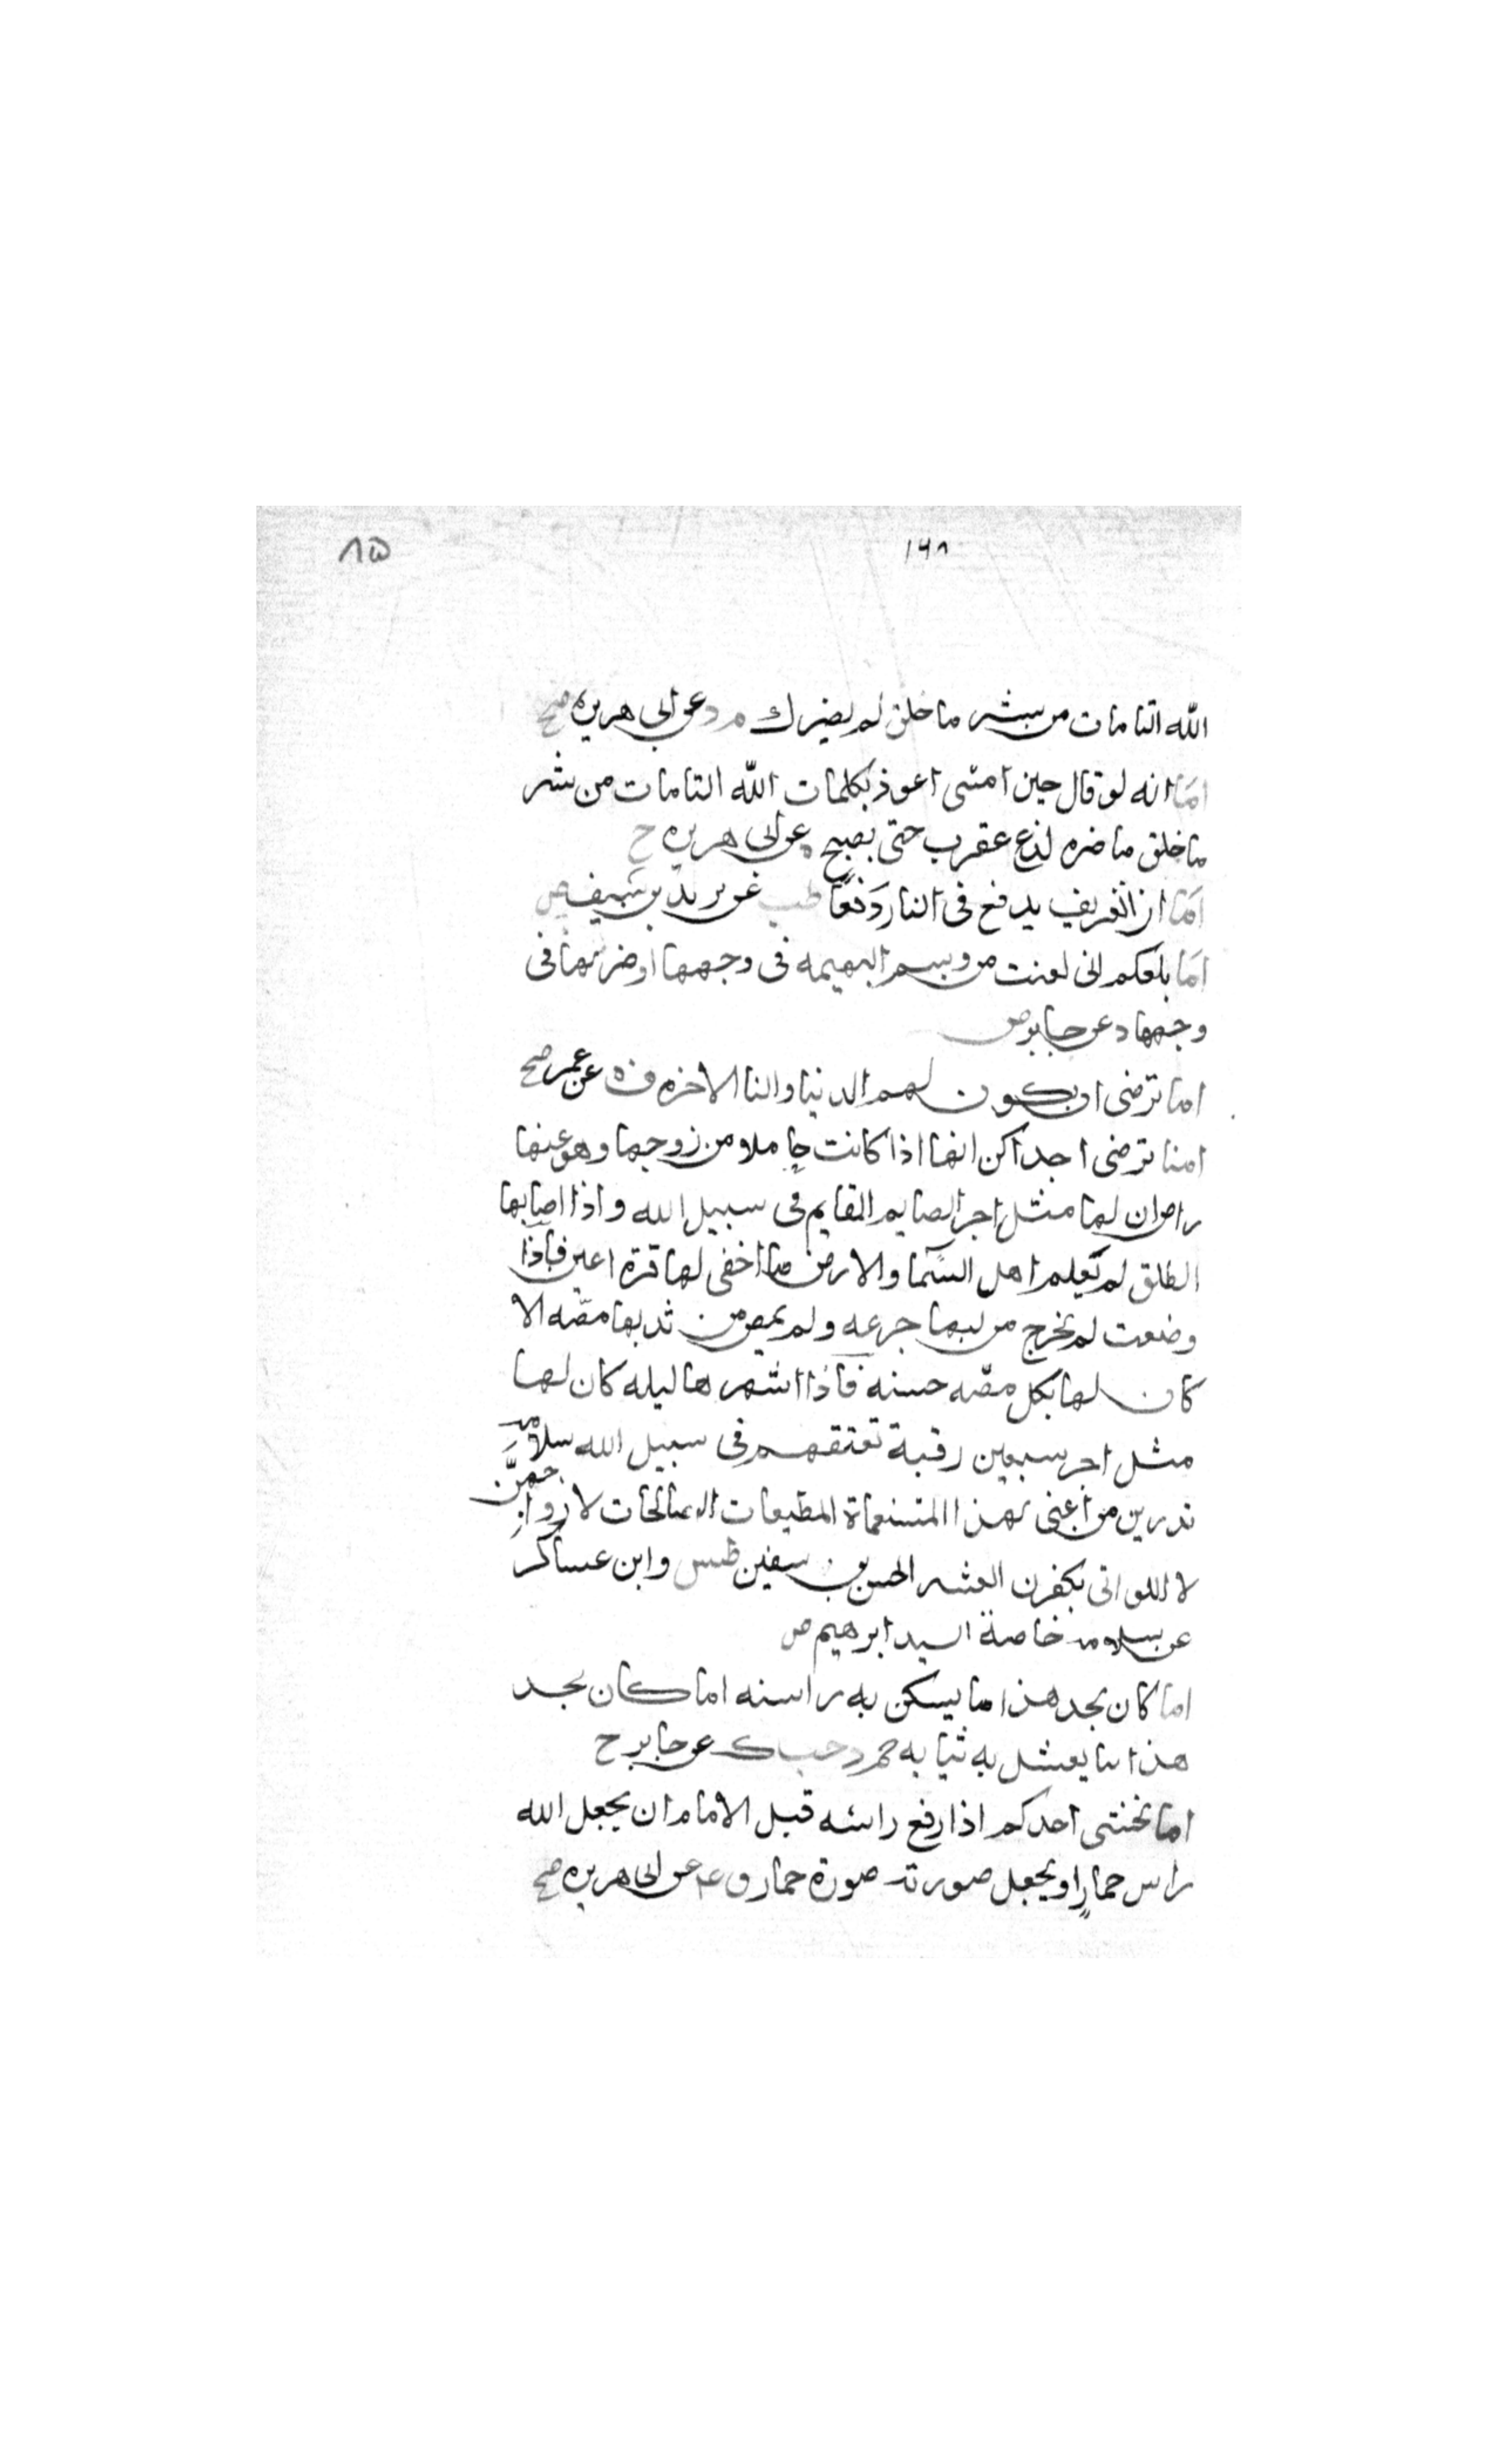 ١٤٨ ٨٥
الله التامات من شر ما خلق لم يضرك م د عن ابي هريره صح
اما انه لو قال حين امسى اعوذ بكلمات الله التامات من شر
ما خلق ما ضره لدغ عقرب حتى يصبح ه عن ابي هريره ح
اما ان العريف يدفع في النار دَفعًا طب عن يزيد بن سيف ض
اما بلغكم اني لعنت من وسم البهيمه في وجهها او ضربها في
وجهها د عن جابر ض
اما ترضى ان يكون لهم الدنيا ولنا الاخره ق ه عن عمر صح
اما ترضى احداكن انها اذا كانت حاملا من زوجها وهو عنها
راض ان لها مثل اجر الصايم القايم في سبيل الله واذا اصابها
الطلق لم يعلم اهل السَّما والارض ما اخفى لها قرة اعين فاذا
وضعت لم يخرج من لبنها جرعه ولم يمص من ثديها مصّه الا
كان لها بكل مصّه حسنه فاذا اسهرها ليله كان لها
مثل اجر سبعين رقبة تعتقهم في سبيل الله سلامه
تدرين من اعني بهذا المتنعماة المطيعات الصالحات لازواجهنَّ
لا اللواتي يكفرن العشير الحسن بن سفين طس وابن عساكر
عن سلامه خاضنة السيد ابرهيم ض
اما كان يجد هذا ما يسكن به راسه اما كان يجد
هذا ما يغسل به ثيابه حم د حب ك عن جابر ح
اما يخشى احدكم اذا رفع راسه قبل الامام ان يجعل الله
راس حمارٍ او يجعل صورته صورة حمار ق ع عن ابي هريره صح